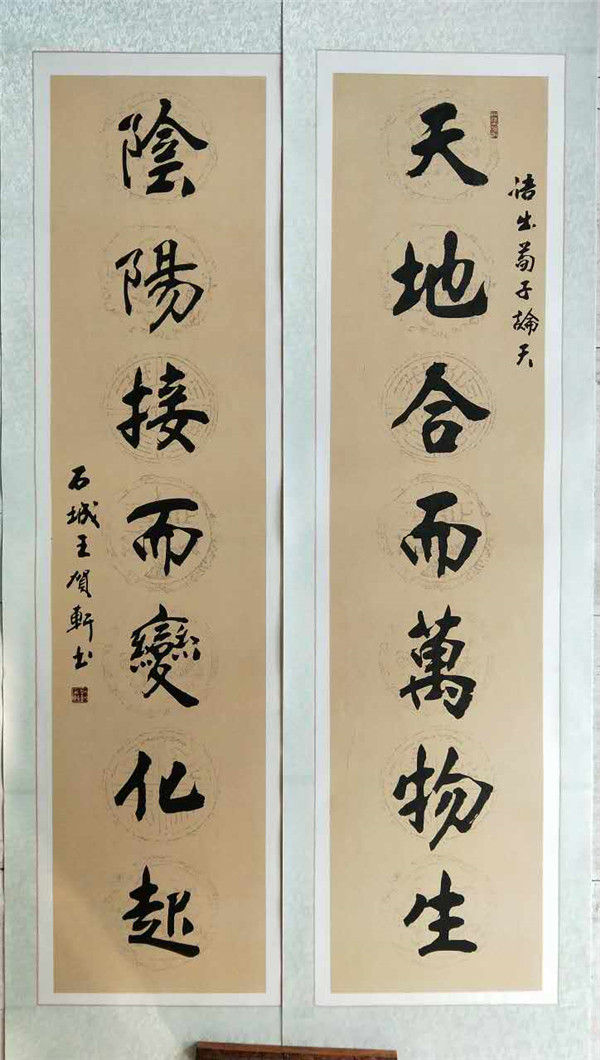 语出荀子論天
天地合而萬物生
陰陽接而變化起
石城王賀軒书